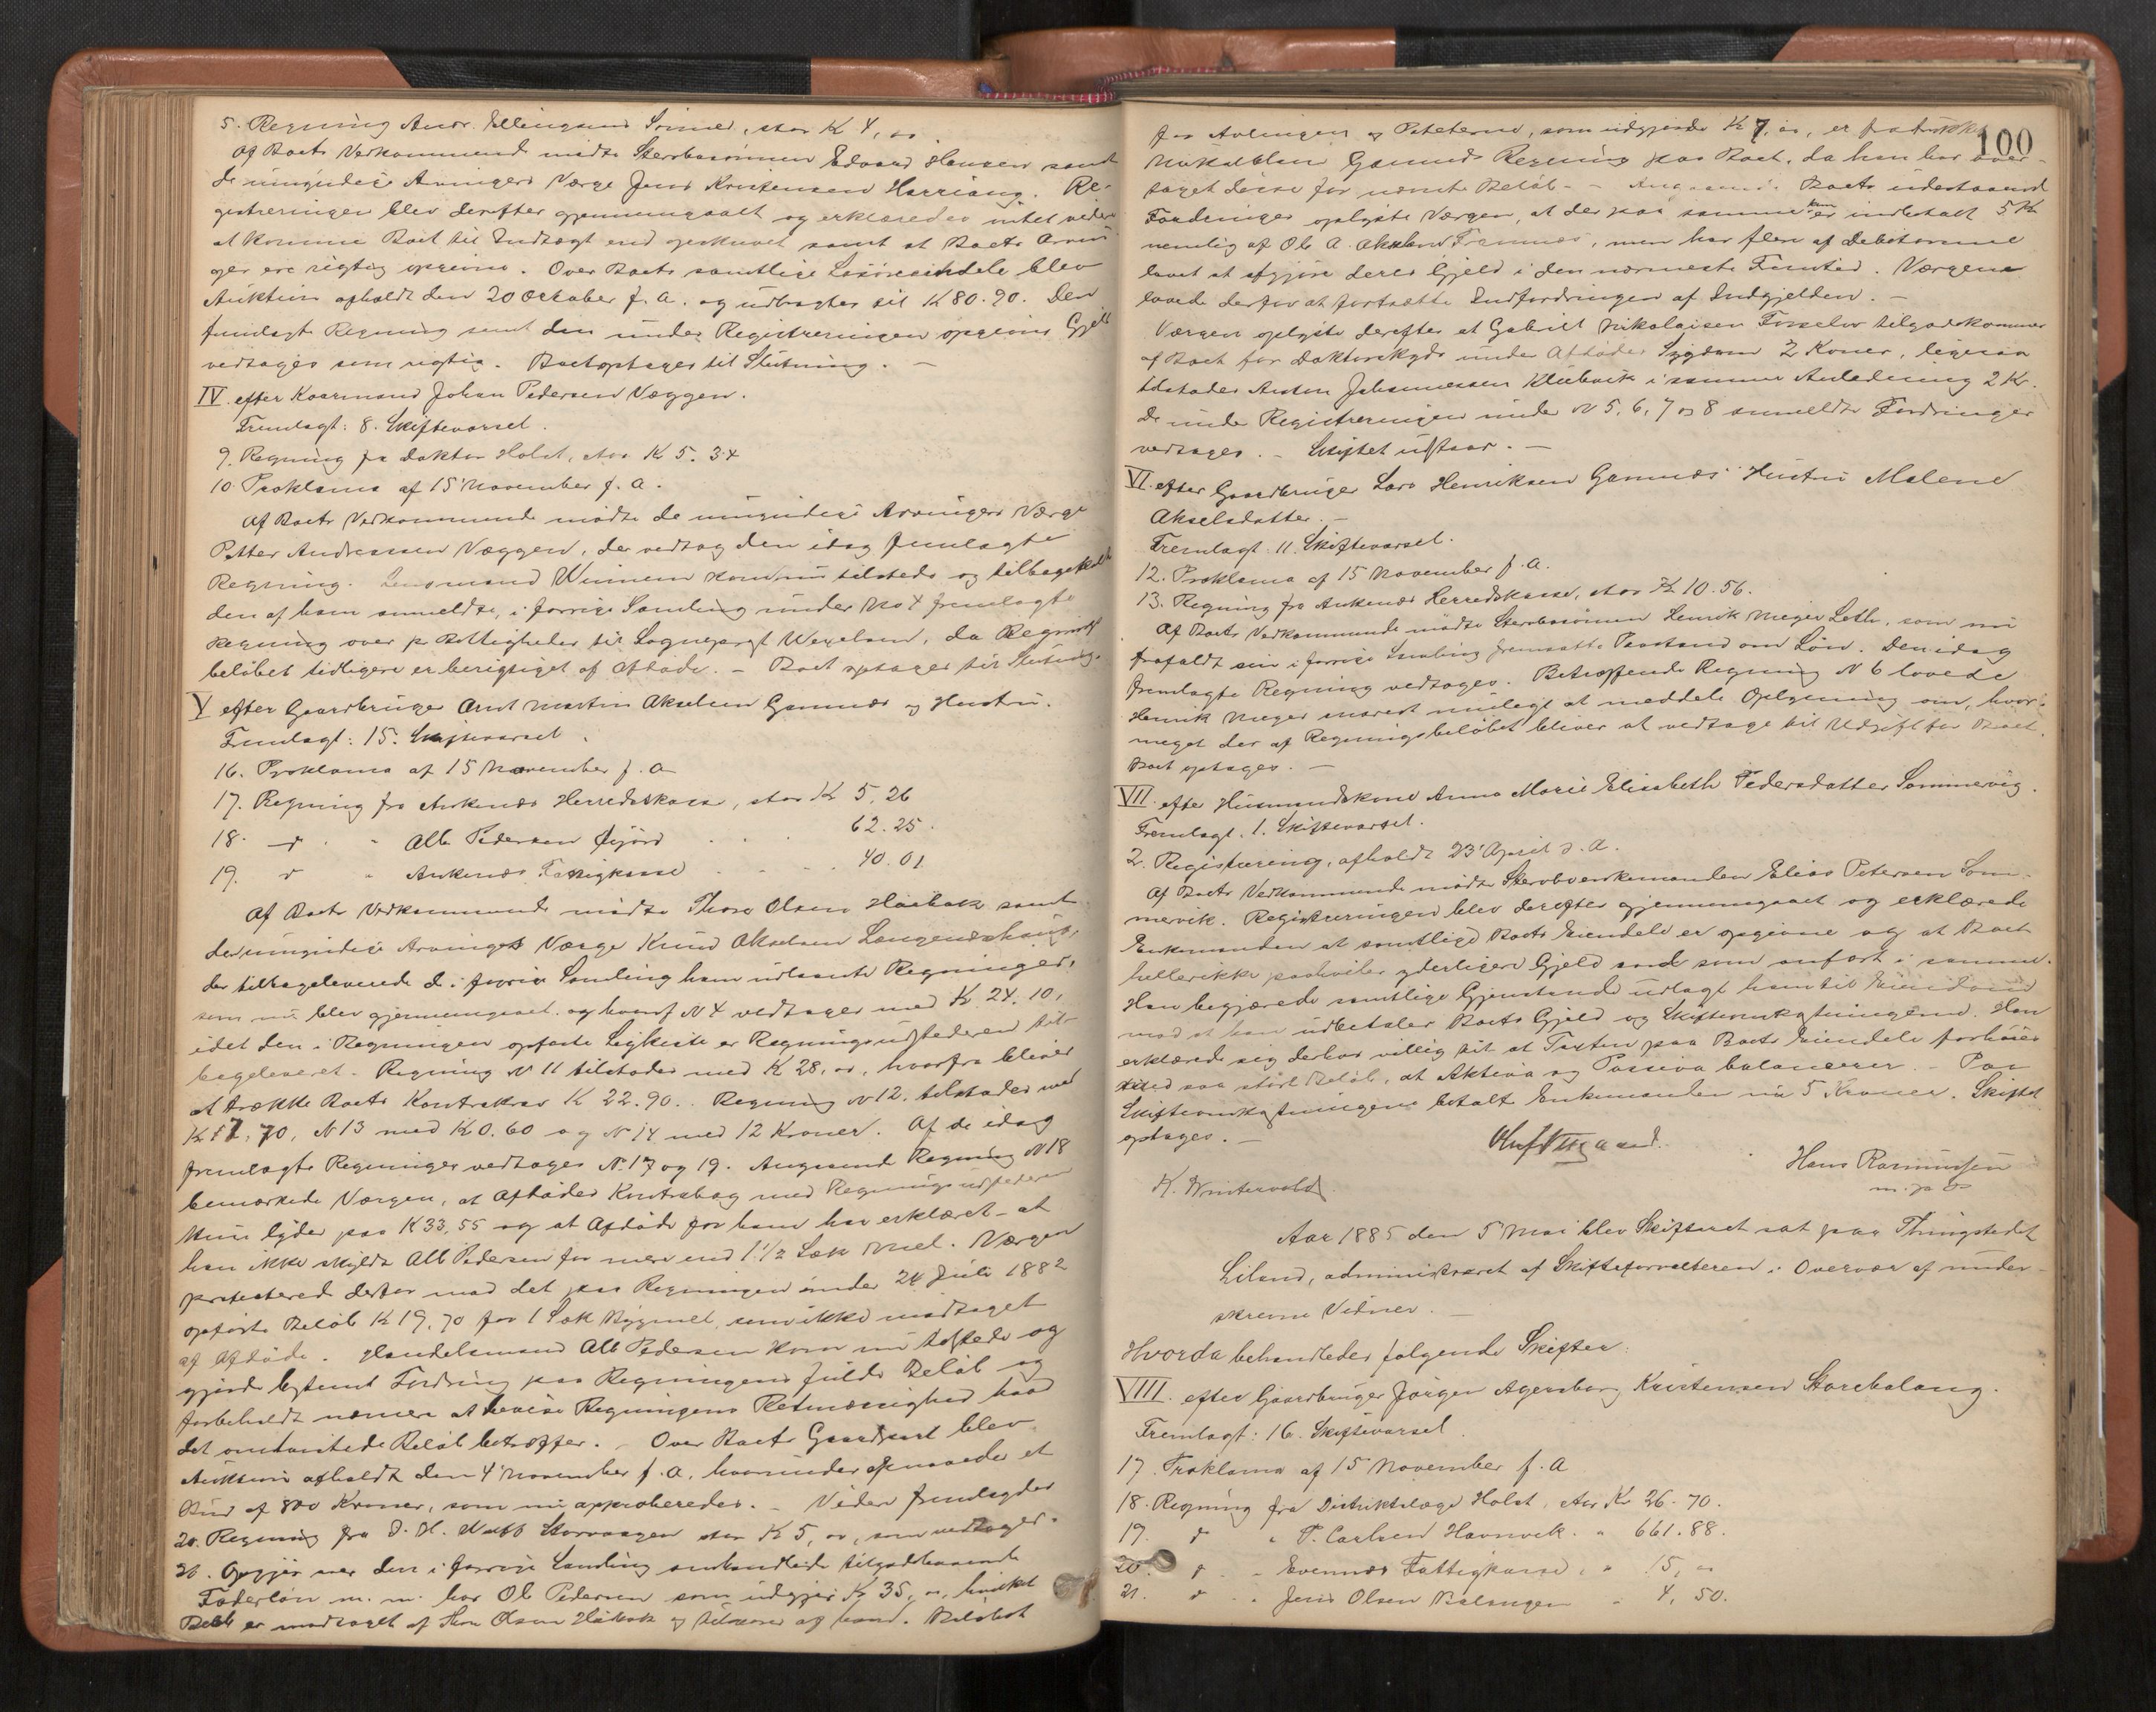 5. Regning Andr. Ellingsens Sønner, stor K 4, oo
Af Boets Vedkommende mødte Stervbosønnen Edvard Hansen samt
de umyndige Arvingers Værge Jens Kristensen Herjang. Re-
gistreringen blev derefter gjennemgaaet og erklæredes intet videre
at komme Boet til Indtægt end opskrevet samt at Boets Arvin-
ger ere rigtig opgivne. Over Boets samtlige Løsøreeiendele blev
Auktion afholdt den 20 Oktober f. A. og udbragtes til K 80.90. Den
fremlagte Regning samt den under Registreringen opgivne Gjeld
vedtages som rigtig. Boet optages til Slutning. —
IV. efter Kaarmand Johan Pedersen Væggen.
Fremlagt: 8. Skiftevarsel.
9. Regning fra Doktor Holst, stor K 5.34
10. Proklama af 15 November f. A.
Af Boets Vedkommende mødte de umyndige Arvingers Værge
Petter Andreassen Væggen, der vedtog den idag fremlagte
Regning. Lensmand Winnem kom nu tilstede og tilbagekaldte
den af ham anmeldte, i forrige Samling under No 4 fremlagte
Regning over p. Rettigheder til Sogneprest Weyelsen, da Regnings-
beløbet tidligere er berigtiget af Afdøde. — Boet optages til Slutning.
V efter Gaardbruger Arnt Martin Akselsen Gamnes og Hustru.
Fremlagt: 15. Skiftevarsel.
16. Proklama af 15 November f. A
17. Regning fra Ankenæs Herredskasse, stor K 5.26
18. do " Alb. Pedersen Øijord 62.25.
19. do " Ankenæs Fattigkasse 40.01
Af Boets Vedkommende mødte Thore Olsen Haabak samt
de umyndige Arvinges Værge Knud Akselsen Længeneshaug,
der tilbageleverede de i forrige Samling ham udlaante Regninger,
som nu blev gjennemgaaet og hvoraf N 4 vedtages med K. 24.10,
idet den i Regningen opførte Ligkiste er Regningsudstederen til-
bageleveret. Regning N 11 tilstodes med K 28, oo, hvorfra bliver
at trække Boets Kontrakrav K 22.90. Regning N 12 tilstodes med
K 17, 70, N 13 med K 0.60 og N 14 med 12 Kroner. Af de idag
fremlagte Regninger vedtages N. 17 og 19. Angaaende Regning N 18
bemærkede Værgen, at Afdødes Kontrabog med Regningsudstederen
kun lyder paa K 33,55 og at Afdøde for ham har erklæret at
han ikke skyldte Alb Pedersen for mere end 1 1/2 Sæk Mel. Værgen
protesterede derfor mod det paa Regningen under 24 Juli 1882
opførte Beløb K 19,70 for 1 Sæk Bygmel, som ikke modtaget
af Afdøde. Handelsmand Alb Pedersen kom nu tilstede og
gjorde bestemt Fordring paa Regningens fulde Beløb og
forbeholdt nærmere at bevise Regningens Retmæssighed hvad
det omtvistede Beløb betræffer. — Over Boets Gaardpart blev
Auktion afholdt den 4 November f. A, hvorunder opnaaedes et
Bud af 800 Kroner, som nu approberedes. — Videre fremlagdes
20. Regning fra J. H. Wulff Storvaagen stor K 5, oo, som vedtoges.
21. Opgjør over den i forrige Samling omhandlede tilgodehavende
Føderløn m. m. hos Ol Pedersen som udgjør K 35, oo, hvilket
Beløb er modtaget af Thore Olsen Haabak og tilkommer af ham. Beløbet
100
for Avlingen og Poteterne, som udgjorde K 7, oo, er fratrukket
Gamnes Regning paa Boet, da han har over-
taget disse for nævnte Beløb. — Angaaende Boets udestaaende
Fordringer oplyste Værgen, at der paa samme kun er indbetalt 5 K
nemlig af Ole A. Akselsen Framnes, men har flere af Debitorerne
lovet at afgjøre deres Gjeld i den nærmeste Fremtid. Værgerne
lovede derfor at fortsætte Indfordringen af Indgjelden. —
Værgen oplyste derefter at Gabriel Nikolaisen Forselv tilgodekommer
af Boet for Doktorskyds under Afdødes Sygdom 2 Kroner, ligesaa
tilstodes Anton Johannessen Klubvik i samme Anledning 2 Kr.
De under Registreringen under N 5, 6, 7 og 8 anmeldte Fordringer
vedtages. — Skiftet udstaar. —
VI. efter Gaardbruger Lars Henriksen Gamnes' Hustru Malene
Akselsdatter. —
Fremlagt: 11. Skiftevarsel.
12. Proklama af 15 November f. A.
13. Regning fra Ankenæs Herredskasse, stor K 10.56.
Af Boets Vedkommende mødte Stervbosønnen Henrik Meyer Leth, som nu
frafaldt sin i forrige Samling fremsatte Paastand om Løn. Den idag
fremlagte Regning vedtages. Betræffende Regning N 6 lovede
Henrik Meyer snarest muligt at meddele Oplysning om, hvor-
meget der af Regningsbeløbet bliver at vedtage til Udgift for Boet.
Boet optages. —
VII. efter Husmandskone Anna Marie Elisabeth Pedersdatter Sommervig.
Fremlagt. 1. Skiftevarsel.
2. Registrering, afholdt 23 April d. A.
Af Boets Vedkommende mødte Stervboenkemanden Elias Petersen Som-
mervik. Registreringen blev derefter gjennemgaaet og erklærede
Enkemanden at samtlige Boets Eiendele er opgivne og at Boet
heller ikke paahviler yderligere Gjeld end som anført i samme.
Han begjærede samtlige Gjenstande udlagt ham til Eiendom
mod at han udbetaler Boets Gjeld og Skifteomkostningerne. Han
erklærede sig derhos villig til at Taxten paa Boets Eiendele forhøies
med saa stort Beløb, at Aktiva og Passiva balancerer. — Paa
Skifteomkostningerne betalte Enkemanden nu 5 Kroner. Skiftet
optages. —
K. Wintervold
Hans Rasmussen
m. p. P
Aar 1885 den 5 Mai blev Skifteret sat paa Thingstedet
Liland, administreret af Skifteforvalteren i Overvær af under-
skrevne Vidner. —
Hvorda behandledes følgende Skifter:
VIII. efter Gaardbruger Jørgen Agersborg Kristensen Storebalang.
Fremlagt: 16. Skiftevarsel.
17. Proklama af 15 November f. A
18. Regning fra Distriktslæge Holst, stor Kr 26.70.
19. do " P. Carlsen Havnvik. " 661.88.
20. do " Evennæs Fattigkasse, " 15, "
21. do " Jens Olsen Balangen " 4, 50.